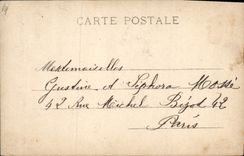 CARTE POSTALE
Mesdemoiselles
Justine et Séphora Mossé
42 Rue Michel Bizot 42
Paris